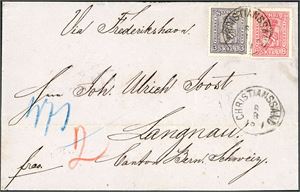 Via Frederikshavn
CHRISTIANSSAND
Herrn Joh. Ulrich Joost
Langnau.
CHRISTIANSSAND
franco
Canton Bern, Schweiz
2